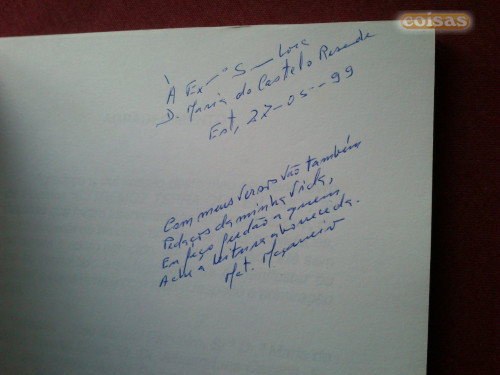 coisas
À Ex
D. Maria do Castelo Resende
Ent, 27-05-99
Com meus versos vão também
Pedaços da minha vida,
Eu faço perdão a quem
Ache a leitura aborrecida.